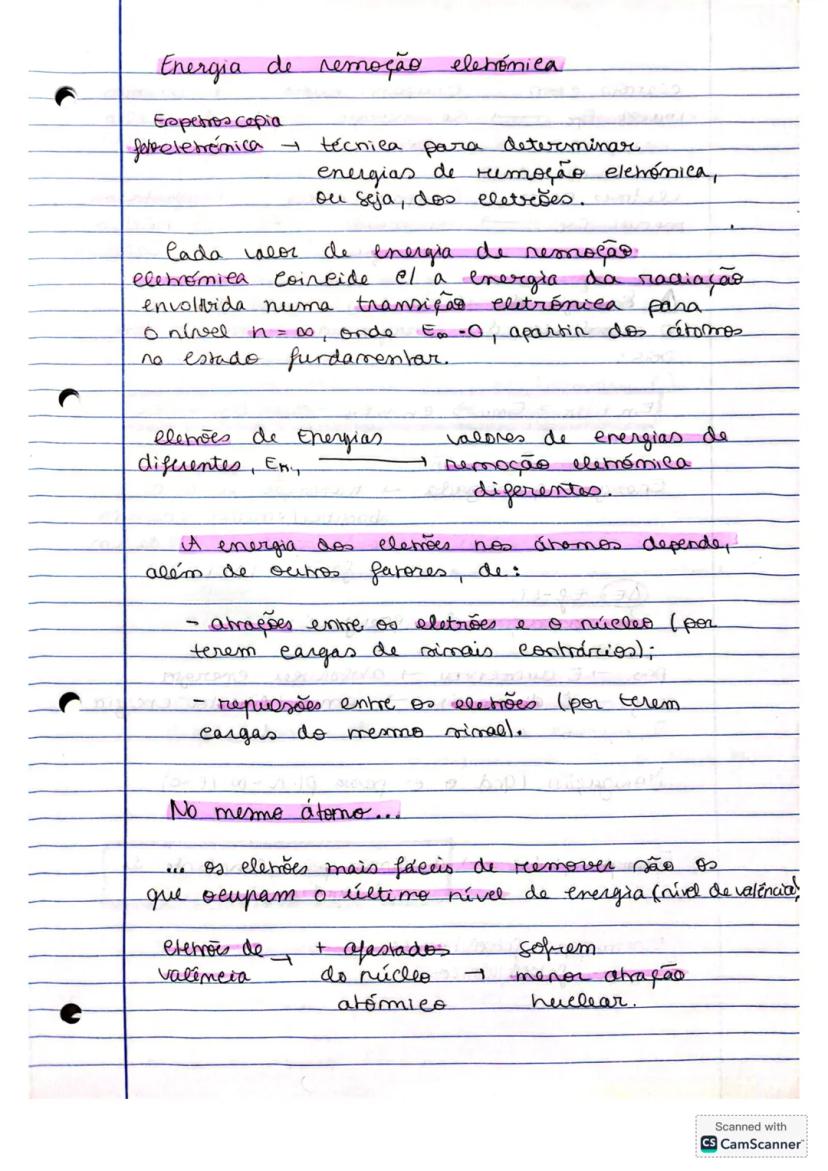 Energia de remoção eletrónica
Espetroscopia
fotoeletrónica → técnica para determinar
energias de remoção eletrónica,
ou seja, dos eletrões.
Cada valor de energia de remoção
eletrónica coincide c/ a energia da radiação
envolvida numa transição eletrónica para
o nível n = ∞, onde E∞ = 0, apartir dos átomos
no estado fundamentar.
eletrões de Energias valores de energias de
diferentes, En, → remoção eletrónica
diferentes.
A energia dos eletrões nos átomos depende,
além de outros fatores, de:
- atrações entre os eletrões e o núcleo (por
terem cargas de sinais contrários);
- repulsões entre os eletrões (por terem
cargas do mesmo sinal).
No mesmo átomo...
... os eletrões mais fáceis de remover são os
que ocupam o último nível de energia (nível de valência)
eletrões de → + afastados sofrem
valência do núcleo → menor atração
atómico nuclear.
Scanned with
CS CamScanner